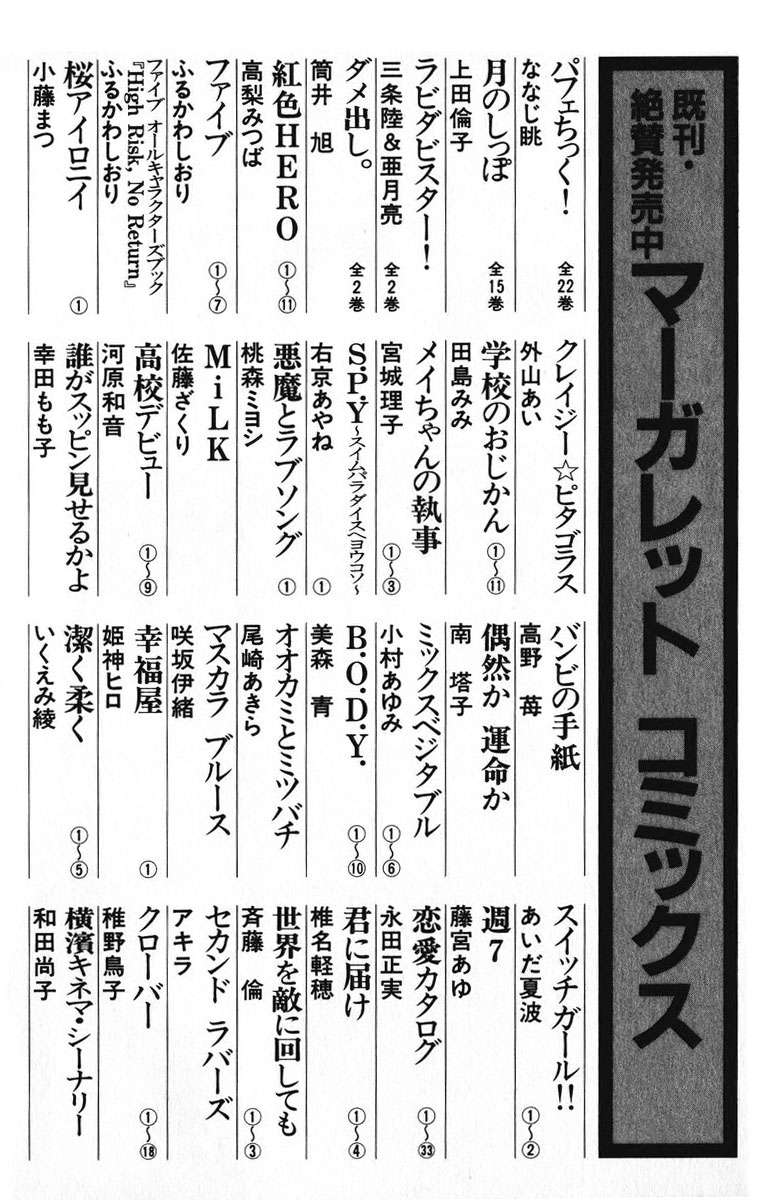 既刊・
絶賛発売中
マーガレット コミックス
パフェちっく!
全22巻
ななじ眺
月のしっぽ
全15巻
上田倫子
ラビダビスター!
全2巻
三条陸&亜月亮
ダメ出し。
全2巻
筒井 旭
紅色HERO
①〜⑪
高梨みつば
ファイブ
①〜⑦
ふるかわしおり
ファイブ オールキャラクターズブック
『High Risk, No Return』
ふるかわしおり
桜アイロニイ
①
小藤まつ
クレイジー☆ピタゴラス
外山あい
学校のおじかん
①〜⑪
田島みみ
メイちゃんの執事
①〜③
宮城理子
S.P.Y〜スイムパラダイスヘヨウコソ〜
①
右京あやね
悪魔とラブソング
①
桃森ミヨシ
MiLK
佐藤ざくり
高校デビュー
①〜⑨
河原和音
誰がスッピン見せるかよ
幸田もも子
バンビの手紙
高野 苺
偶然か 運命か
南 塔子
ミックスベジタブル
①〜⑥
小村あゆみ
B.O.D.Y.
①〜⑩
美森 青
オオカミとミツバチ
尾崎あきら
マスカラ ブルース
咲坂伊緒
幸福屋
①
姫神ヒロ
潔く柔く
①〜⑤
いくえみ綾
スイッチガール!!
①〜②
あいだ夏波
週7
藤宮あゆ
恋愛カタログ
①〜㉝
永田正実
君に届け
①〜④
椎名軽穂
世界を敵に回しても
①〜③
斉藤 倫
セカンド ラバーズ
アキラ
クローバー
①〜⑱
稚野鳥子
横濱キネマ・シーナリー
和田尚子